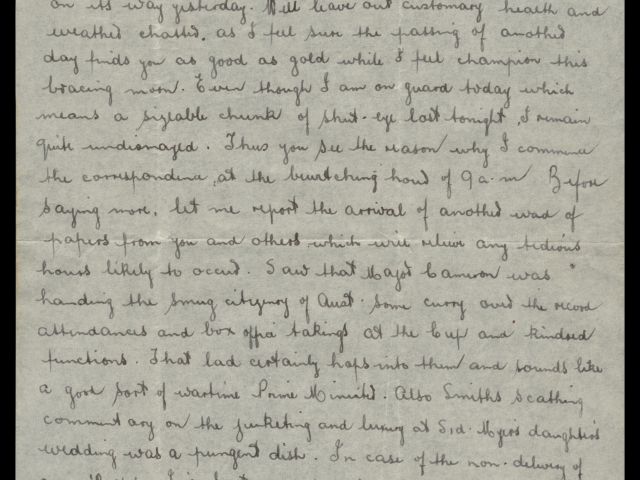 on its way yesterday. Well leave out customary health and
weather chatter, as I feel sure the passing of another
day finds you as good as gold while I feel champion this
bracing morn. Even though I am on guard today which
means a sizeable chunk of shut-eye lost tonight, I remain
quite undismayed. Thus you see the reason why I commence
the correspondence, at the bewitching hour of 9 a.m Before
saying more, let me report the arrival of another wad of
papers from you and others, which will relieve any tedious
hours likely to occur. Saw that Major Cameron was
handing the smug citizenry of Aust. some curry over the record
attendances and box office takings at the Cup and kindred
functions. That lad certainly hops into them and sounds like
a good sort of wartime Prime Minister. Also Smiths scathing
commentary on the junketing and luxury at Sid. Myers daughter's
wedding was a pungent dish. In case of the non-delivery of